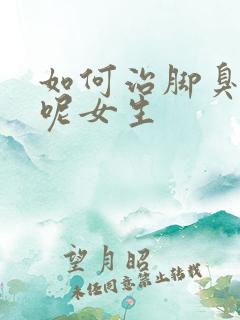 如何治脚臭
呢女生
望月昭
未经同意禁止转载